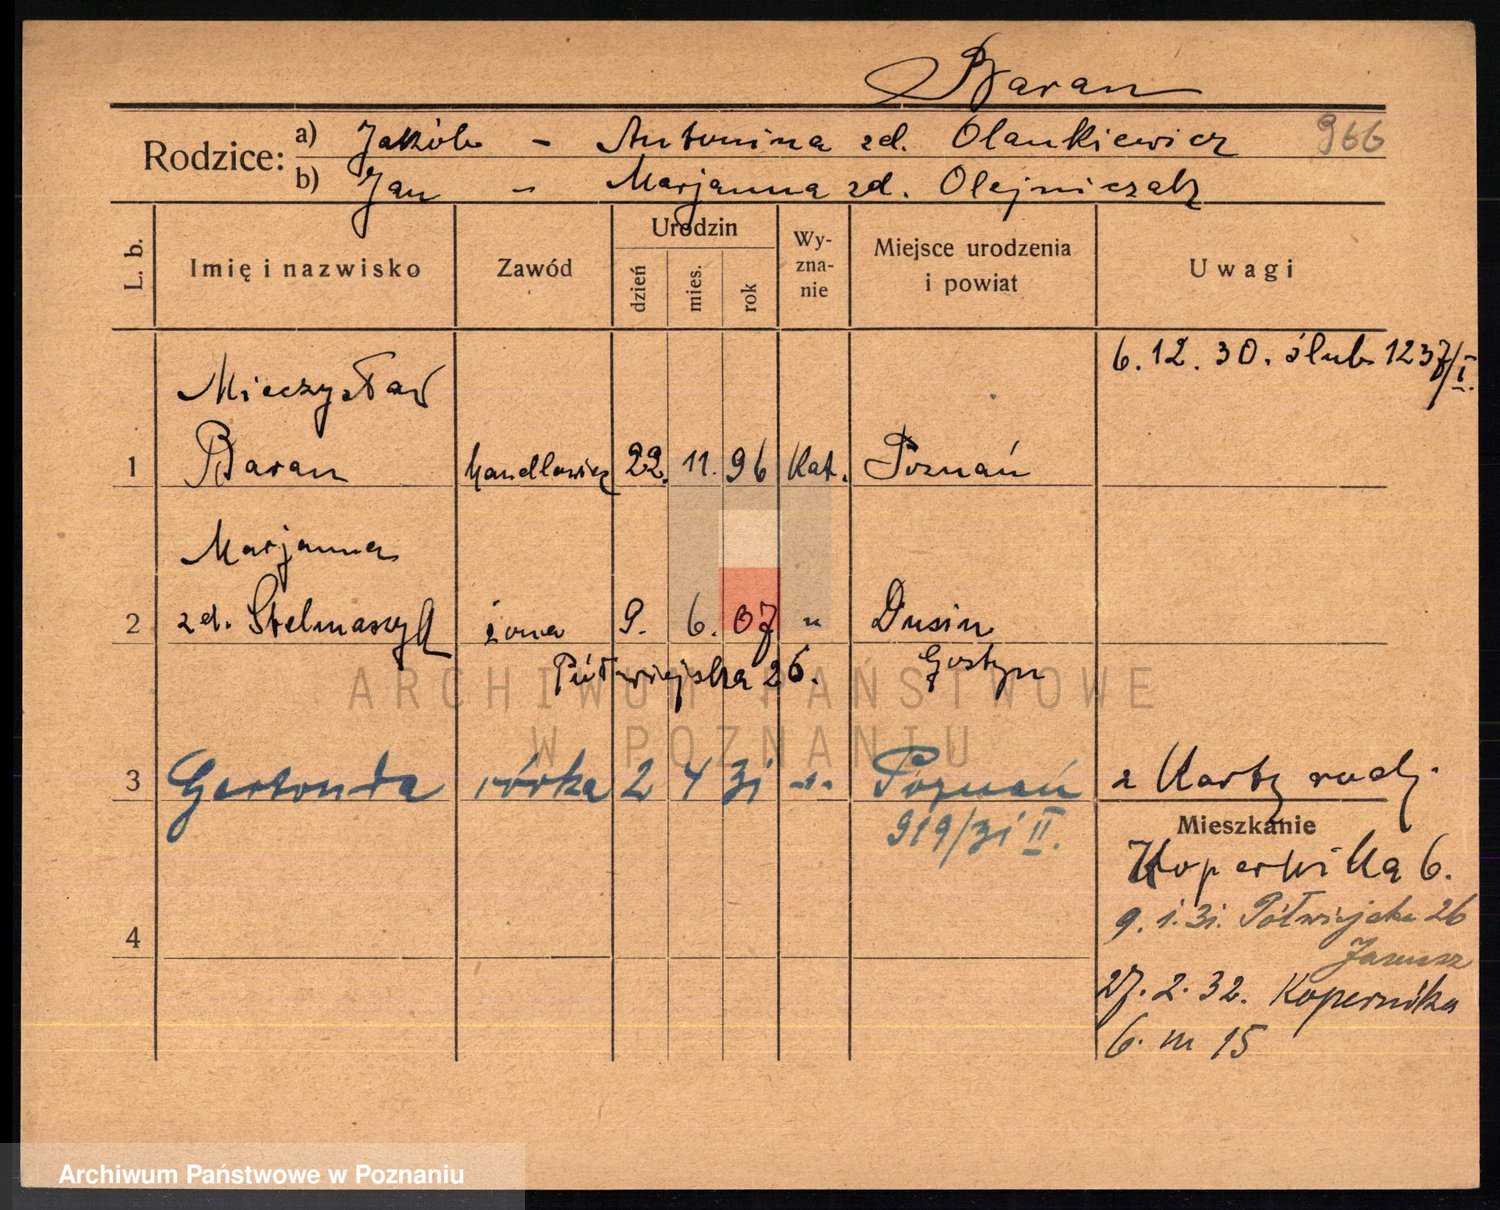 Baran
Rodzice: a) Jakób - Antonina zd. Olankiewicz 966
b) Jan - Marjanna zd. Olejniczak
L. b. Imię i nazwisko Zawód Urodzin dzień mies. rok Wy-zna-nie Miejsce urodzenia i powiat Uwagi
6.12.30. ślub 1237/I.
Mieczysław
1 Baran handlowiec 22. 11. 96 kat. Poznań
Marjanna
2 zd. Stelmaszyk żona 9. 6. 07 " Dusin
Półwiejska 26. Gostyn
ARCHIWUM PAŃSTWOWE
W POZNANIU
3 córka 2 4 31 -"- Poznań z Karty rodz.
919/31 II.
Mieszkanie
Kopernika 6.
9.1.31. Półwiejska 26
Janusz
4
27.2.32. Kopernika
6. m 15
Archiwum Państwowe w Poznaniu